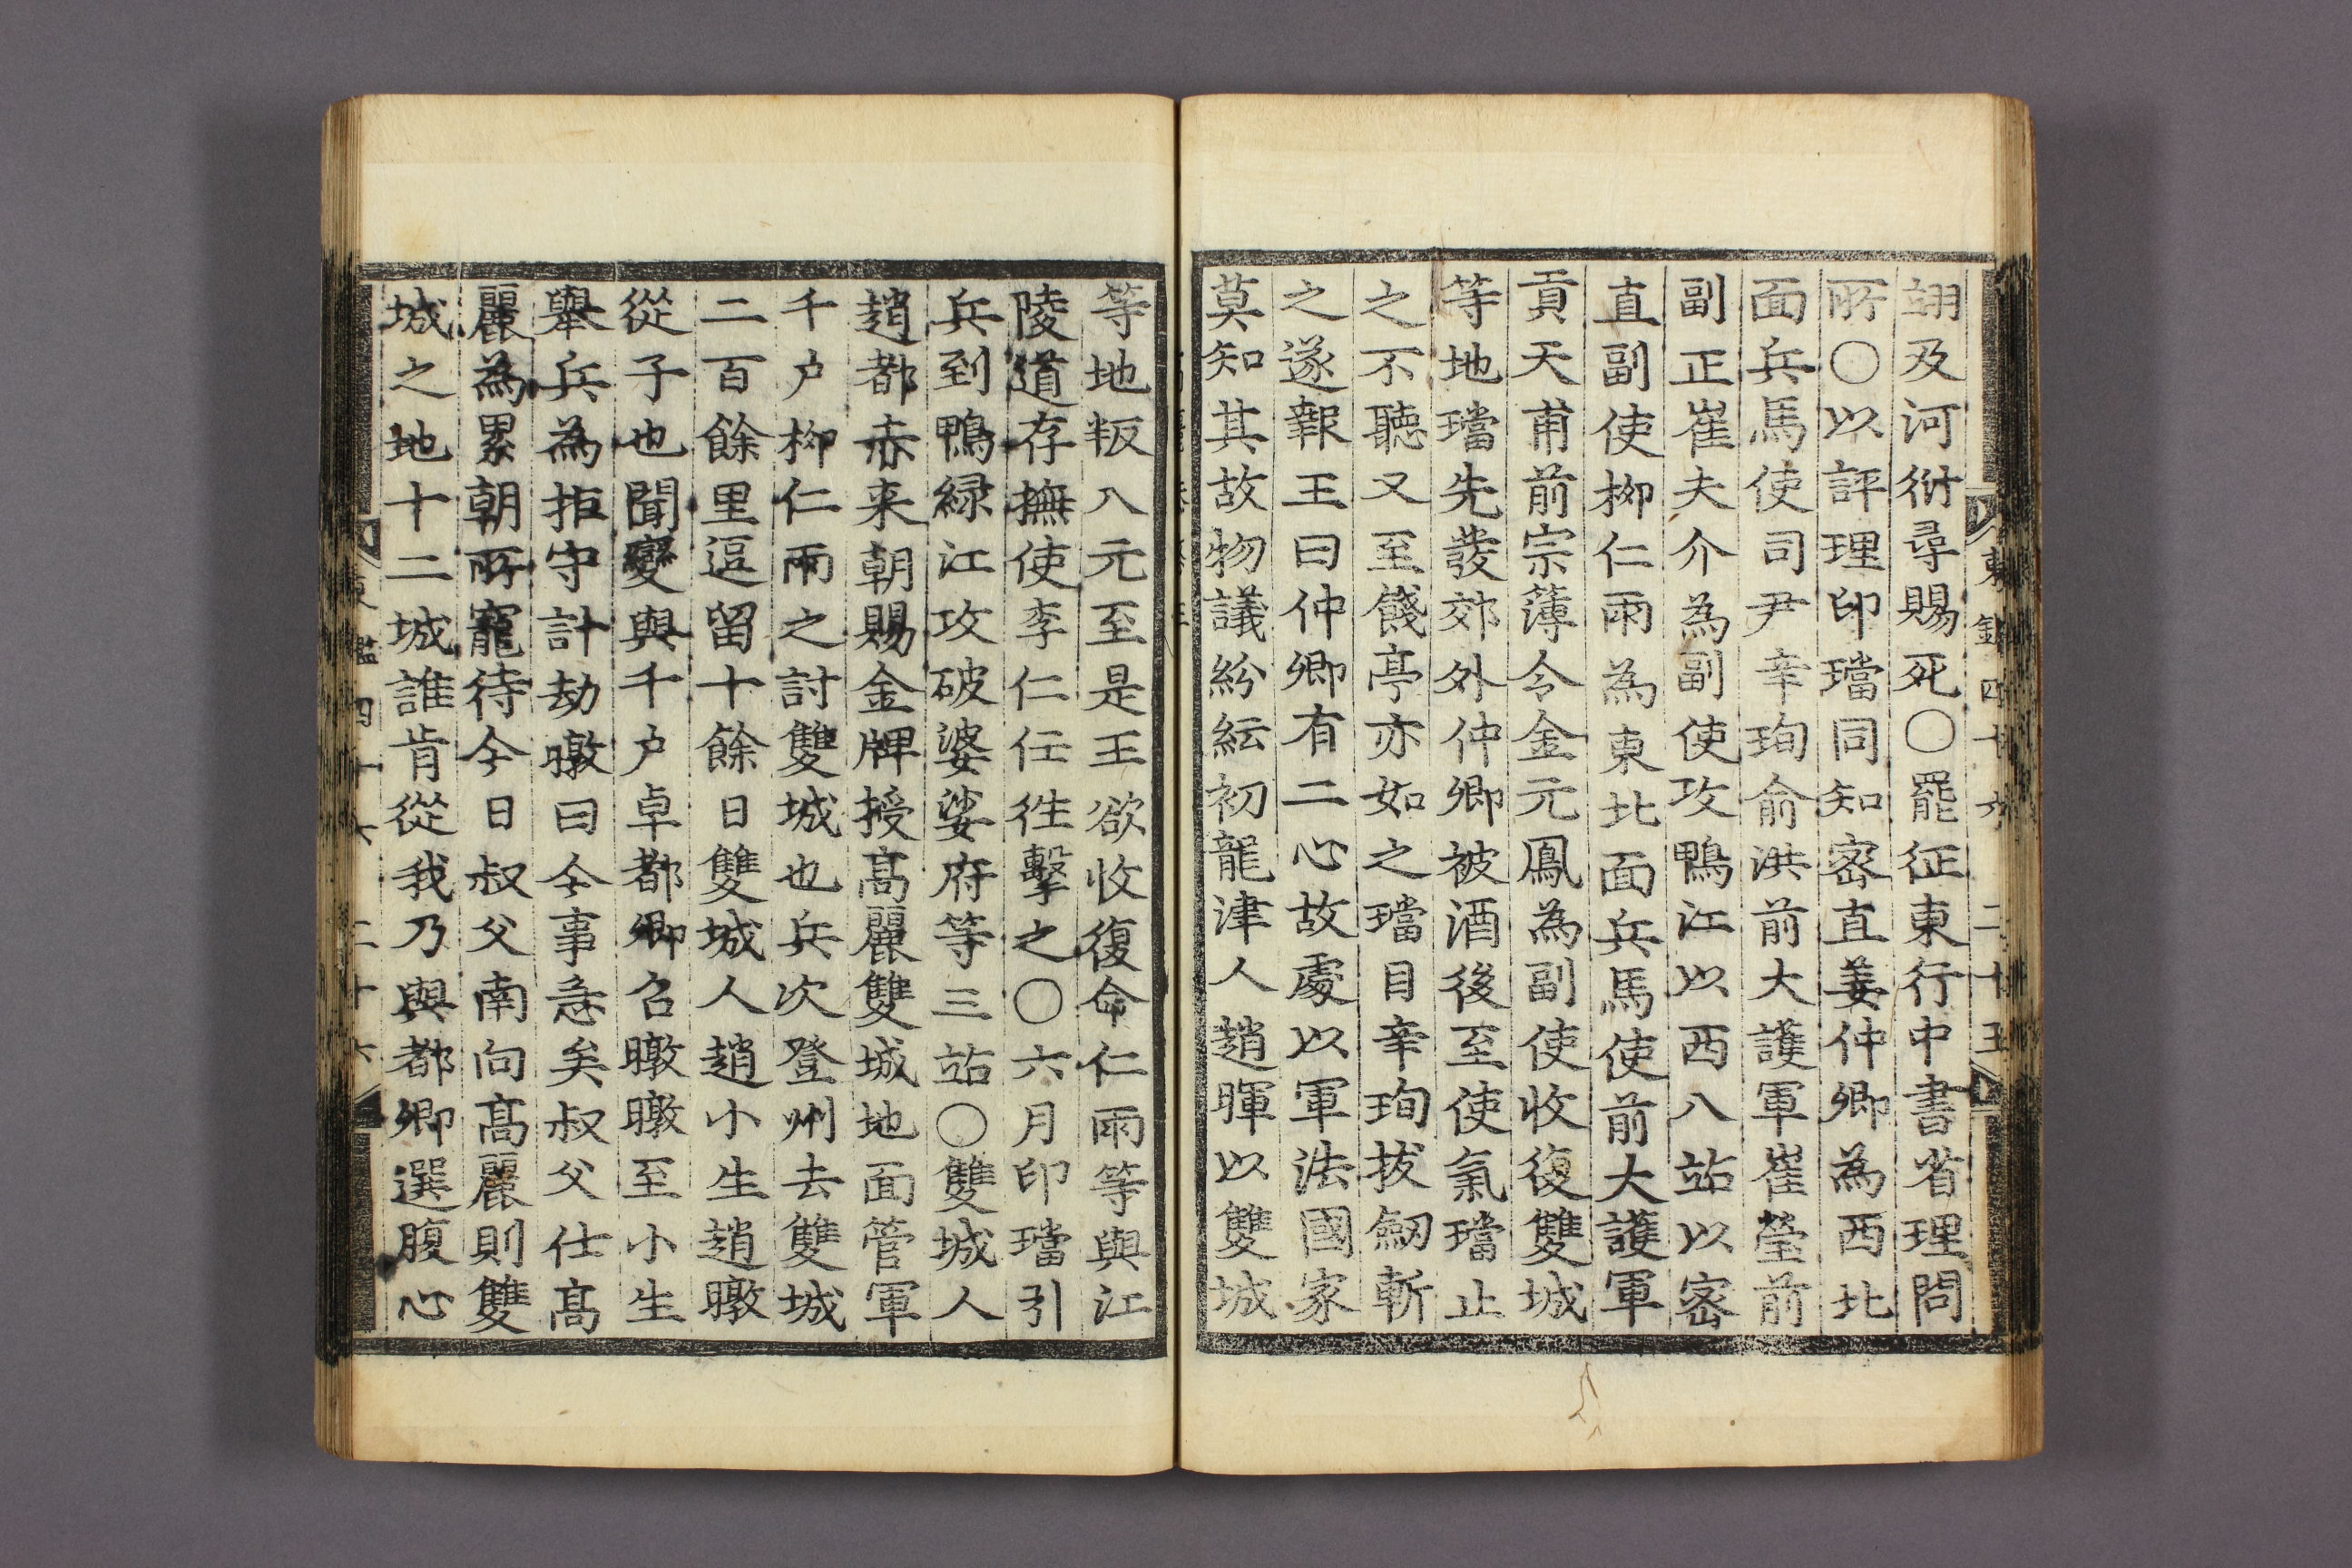 東鑑四十六 二十五
翊及河衍尋賜死○罷征東行中書省理問
所○以評理印璫同知密直姜仲卿為西北
面兵馬使司尹辛珣俞洪前大護軍崔瑩前
副正崔夫介為副使攻鴨江以西八站以密
直副使柳仁雨為東北面兵馬使前大護軍
貢天甫前宗簿令金元鳳為副使收復雙城
等地璫先發郊外仲卿被酒後至使氣璫止
之不聽又至餞亭亦如之璫目辛珣拔劒斬
之遂報王曰仲卿有二心故處以軍法國家
莫知其故物議紛紜初龍津人趙暉以雙城
等地叛入元至是王欲收復命仁雨等與江
陵道存撫使李仁任徃擊之○六月印璫引
兵到鴨緑江攻破婆娑府等三站○雙城人
趙都赤来朝賜金牌授高麗雙城地面管軍
千户柳仁雨之討雙城也兵次登州去雙城
二百餘里逗留十餘日雙城人趙小生趙暾
從子也聞變與千户卓都卿召暾暾至小生
舉兵為拒守計劫暾曰今事急矣叔父仕高
麗為累朝所寵待今日叔父南向高麗則雙
城之地十二城誰肯從我乃與都卿選腹心
東鑑四十六 二十六